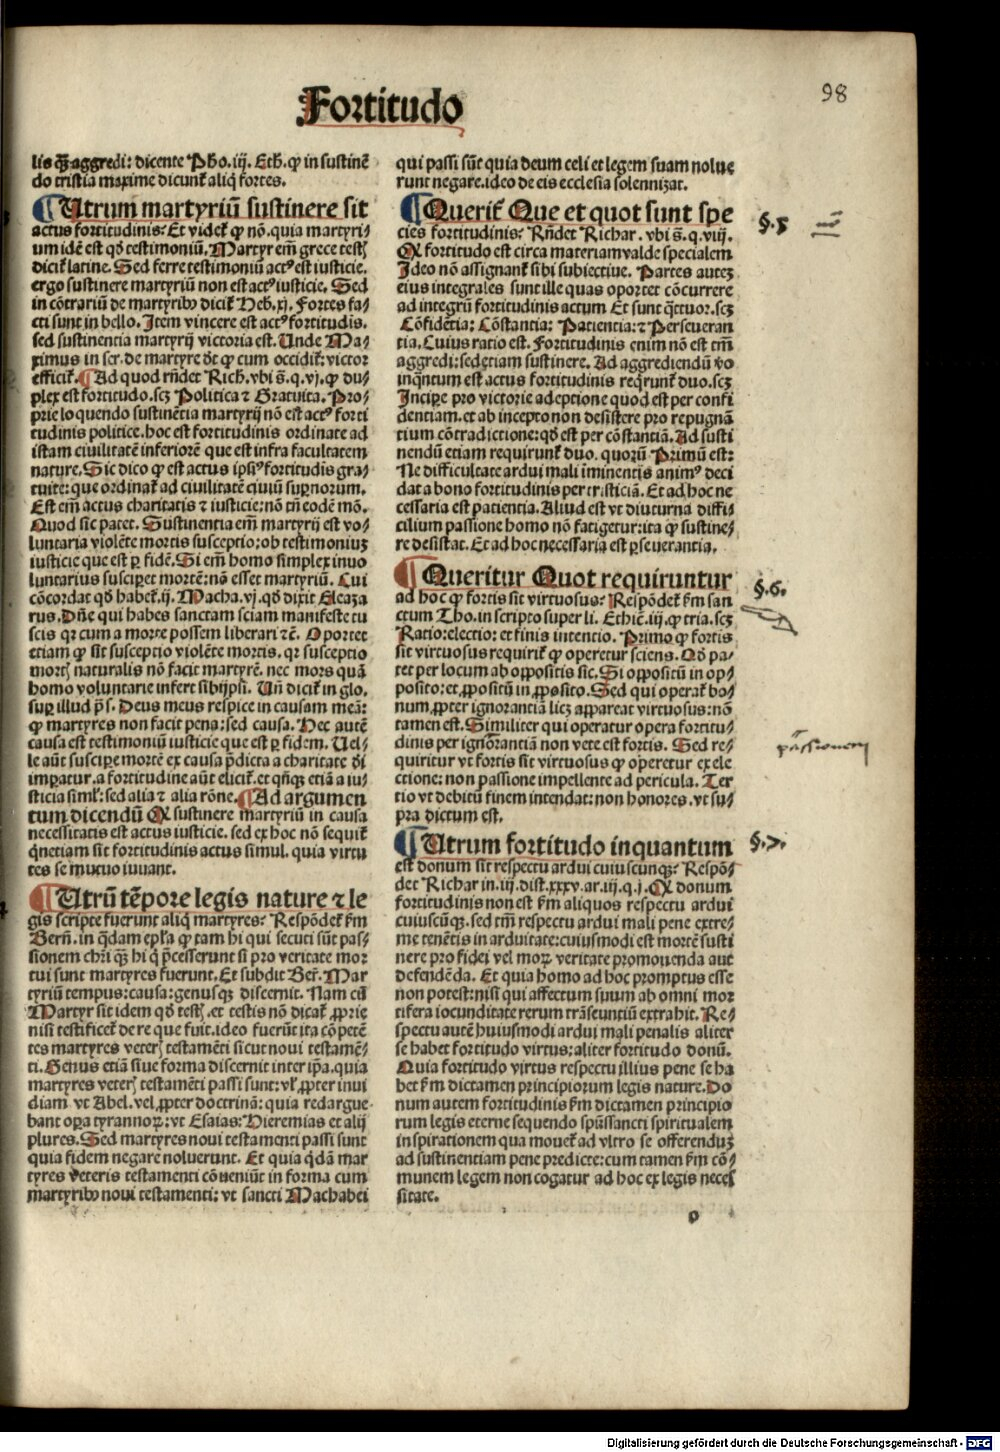 98
Fortitudo
lis q̃ aggredi: dicente Pho. iij. Eth. ꝙ in sustinē
do tristia maxime dicunt̃ aliq̃ fortes.
¶ Utrum martyriū sustinere sit
actus fortitudinis? Et videt̃ ꝙ nō. quia martyri⸗
um idē est qđ testimoniū. Martyr em̄ grece testꝭ
dicit̃ latine. Sed ferre testimoniū actꝰ est iusticie.
ergo sustinere martyriū non est actꝰ iusticie. Sed
in cōtrariū de martyribꝰ dicit̃ Heb. xj. Fortes fa⸗
cti sunt in bello. Item vincere est actꝰ fortitudis.
sed sustinentia martyrij victoria est. Unde Ma⸗
ximus in ser. de martyre dt̃ ꝙ cum occidit̃: victor
efficit̃. ¶ Ad quod rñdet Rich. vbi s̄. q. vj. ꝙ du⸗
plex est fortitudo. scꝫ Politica ⁊ Gratuita. Pro⸗
prie loquendo sustinētia martyrij nō est actꝰ forti
tudinis politice. hoc est fortitudinis ordinate ad
istam ciuilitatē inferiorē que est infra facultatem
nature. Sic dico ꝙ est actus ipsiꝰ fortitudis gra⸗
tuite: que ordinat̃ ad ciuilitatē ciuiū suꝑnorum.
Est em̄ actus charitatis ⁊ iusticie: nō tñ eodē mō.
Quod sic patet. Sustinentia em̄ martyrij est vo⸗
luntaria violēte mortis susceptio: ob testimoniuꝫ
iusticie que est ꝑ fidē. Si em̄ homo simplex inuo
luntarius susciꝑet mortē: nō esset martyriū. Cui
cōcordat qđ habet̃. ij. Macha. vj. qđ dixit Eleaza
rus. Dñe qui habes sanctam sciam manifeste tu
scis qꝛ cum a morte possem liberari ⁊c̄. Oportet
etiam ꝙ sit susceptio violēte mortis. qꝛ susceptio
mortꝭ naturalis nō facit martyrē. nec mors quā
homo voluntarie infert sibijpsi. Uñ dicit̃ in glo.
suꝑ illud p̄s. Deus meus respice in causam meā:
ꝙ martyres non facit pena: sed causa. Hec autē
causa est testimoniū iusticie que est ꝑ fidem. Uel⸗
le aūt susciꝑe mortē ex causa p̄dicta a charitate dī
imꝑatur. a fortitudine aūt elicit̃. et qñqꝫ etiā a iu⸗
sticia simlr̃: sed alia ⁊ alia rōne. ¶ Ad argumen
tum dicendū Ꝙ sustinere martyriū in causa
necessitatis est actus iusticie. sed ex hoc nō sequit̃
q̄netiam sit fortitudinis actus simul. quia virtu
tes se mutuo iuuant.
¶ Utrū tēpore legis nature ⁊ le
gis scripte fuerunt aliq̃ martyres? Respōdet̃ fm̄
Bern̄. in q̄dam epl̄a ꝙ tam hi qui secuti sūt pas⸗
sionem chr̄i qꝫ hi q̄ p̄cesserunt si pro veritate mor
tui sunt martyres fuerunt. Et subdit Ber̃. Mar
tyriū tempus: causa: genusqꝫ discernit. Nam cū
Martyr sit idem qđ testꝭ. et testis nō dicat̃ ꝓprie
nisi testificet̃ de re que fuit. ideo fuerūt ita cōpetē
tes martyres veterꝭ testamēti sicut noui testamē⸗
ti. Genus etiā siue forma discernit inter ip̄a. quia
martyres veterꝭ testamēti passi sunt: vl̃ ꝓpter inui
diam vt Abel. vel ꝓpter doctrinā: quia redargue⸗
bant oꝑa tyrannoꝝ: vt Esaias: Hieremias et alij
plures. Sed martyres noui testamenti passi sunt
quia fidem negare noluerunt. Et quia q̄dā mar
tyres veteris testamenti cōueniūt in forma cum
martyribꝰ noui testamenti: vt sancti Machabei
qui passi sūt quia deum celi et legem suam nolue
runt negare. ideo de eis ecclesia solennizat.
¶ Querit̃ Que et quot sunt spe
cies fortitudinis? Rñdet Richar. vbi s̄. q. viij.
Ꝙ fortitudo est circa materiam valde specialem
Ideo nō assignant̃ sibi subiectiue. Partes auteꝫ
eius integrales sunt ille quas oportet cōcurrere
ad integrū fortitudinis actum Et sunt q̄ttuor. scꝫ
Cōfidētia: Cōstantia: Patientia: ⁊ Perseueran
tia. Cuius ratio est. Fortitudinis enim nō est tm̄
aggredi: sed etiam sustinere. Ad aggrediendū ꝟo
inq̄ntum est actus fortitudinis reqrunt̃ duo. scꝫ
Inciꝑe pro victorie adeptione quod est per confi
dentiam. et ab incepto non desistere pro repugnā
tium cōtradictione: qđ est per cōstantiā. Ad susti
nendū etiam requirunt̃ duo. quorū Primū est:
Ne difficultate ardui mali īminentis animꝰ deci
dat a bono fortitudinis per tristiciā. Et ad hoc ne
cessaria est patientia. Aliud est vt diuturna diffi⸗
cilium passione homo nō fatigetur: ita ꝙ sustine⸗
re desistat. Et ad hoc necessaria est ꝑseuerantia.
¶ Queritur Quot requiruntur
ad hoc ꝙ fortis sit virtuosus? Respōdet̃ fm̄ san
ctum Tho. in scripto super li. Ethic̄. iij. ꝙ tria. scꝫ
Ratio: electio: et finis intencio. Primo ꝙ fortis
sit virtuosus requirit̃ ꝙ operetur sciens. Qđ pa⸗
tet per locum ab oppositis sic. Si oppositū in op⸗
posito: et ꝓpositū in ꝓposito. Sed qui operat̃ bo⸗
num ꝓpter ignorantiā licꝫ appareat virtuosus: nō
tamen est. Similiter qui operatur opera fortitu⸗
dinis per ignorantiā non vere est fortis. Sed re⸗
quiritur vt fortis sit virtuosus ꝙ operetur ex ele
ctione: non passione impellente ad pericula. Ter
tio vt debitū finem intendat: non honores. vt su⸗
pra dictum est.
¶ Utrum fortitudo inquantum
est donum sit respectu ardui cuiuscunqꝫ? Respō⸗
det Richar in. iij. dist. xxxv. ar. iij. q. j. Ꝙ donum
fortitudinis non est fm̄ aliquos respectu ardui
cuiuscūqꝫ. sed tm̄ respectu ardui mali pene extre⸗
me tenētis in arduitate: cuiusmodi est mortē susti
nere pro fidei vel moꝝ veritate promouenda aut
defendēda. Et quia homo ad hoc promptus esse
non potest: nisi qui affectum suum ab omni mor
tifera iocunditate rerum trāseuntiū extrahit. Re⸗
spectu autē huiusmodi ardui mali penalis aliter
se habet fortitudo virtus: aliter fortitudo donū.
Quia fortitudo virtus respectu illius pene se ha
bet fm̄ dictamen principiorum legis nature. Do
num autem fortitudinis fm̄ dictamen principio
rum legis eterne sequendo spūssancti spiritualem
inspirationem qua mouet̃ ad vltro se offerenduꝫ
ad sustinentiam pene predicte: cum tamen fm̄ cō⸗
munem legem non cogatur ad hoc ex legis neces
sitate.
o
§. 5
§. 6.
passionem
§. 7.
Digitalisierung gefördert durch die Deutsche Forschungsgemeinschaft - DFG